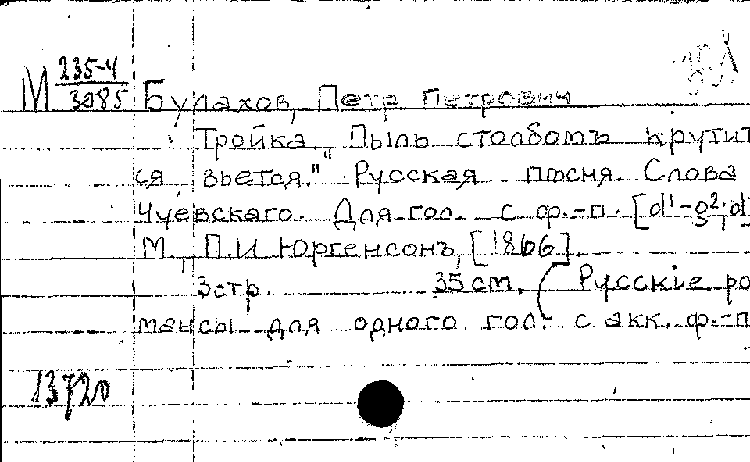 М 235-4/3085 Булахов, Петр Петрович
Тройка "Пыль столбомъ крутит
ся вьется." Русская пѣсня. Слова
Чуевскаго. Для гол. с ф.-п. [d¹-g²; d]
М., П.И Юргенсонъ, [1866].
3стр. 35 cm. (Русскіе ро
мансы для одного гол. с акк. ф.-п
13720